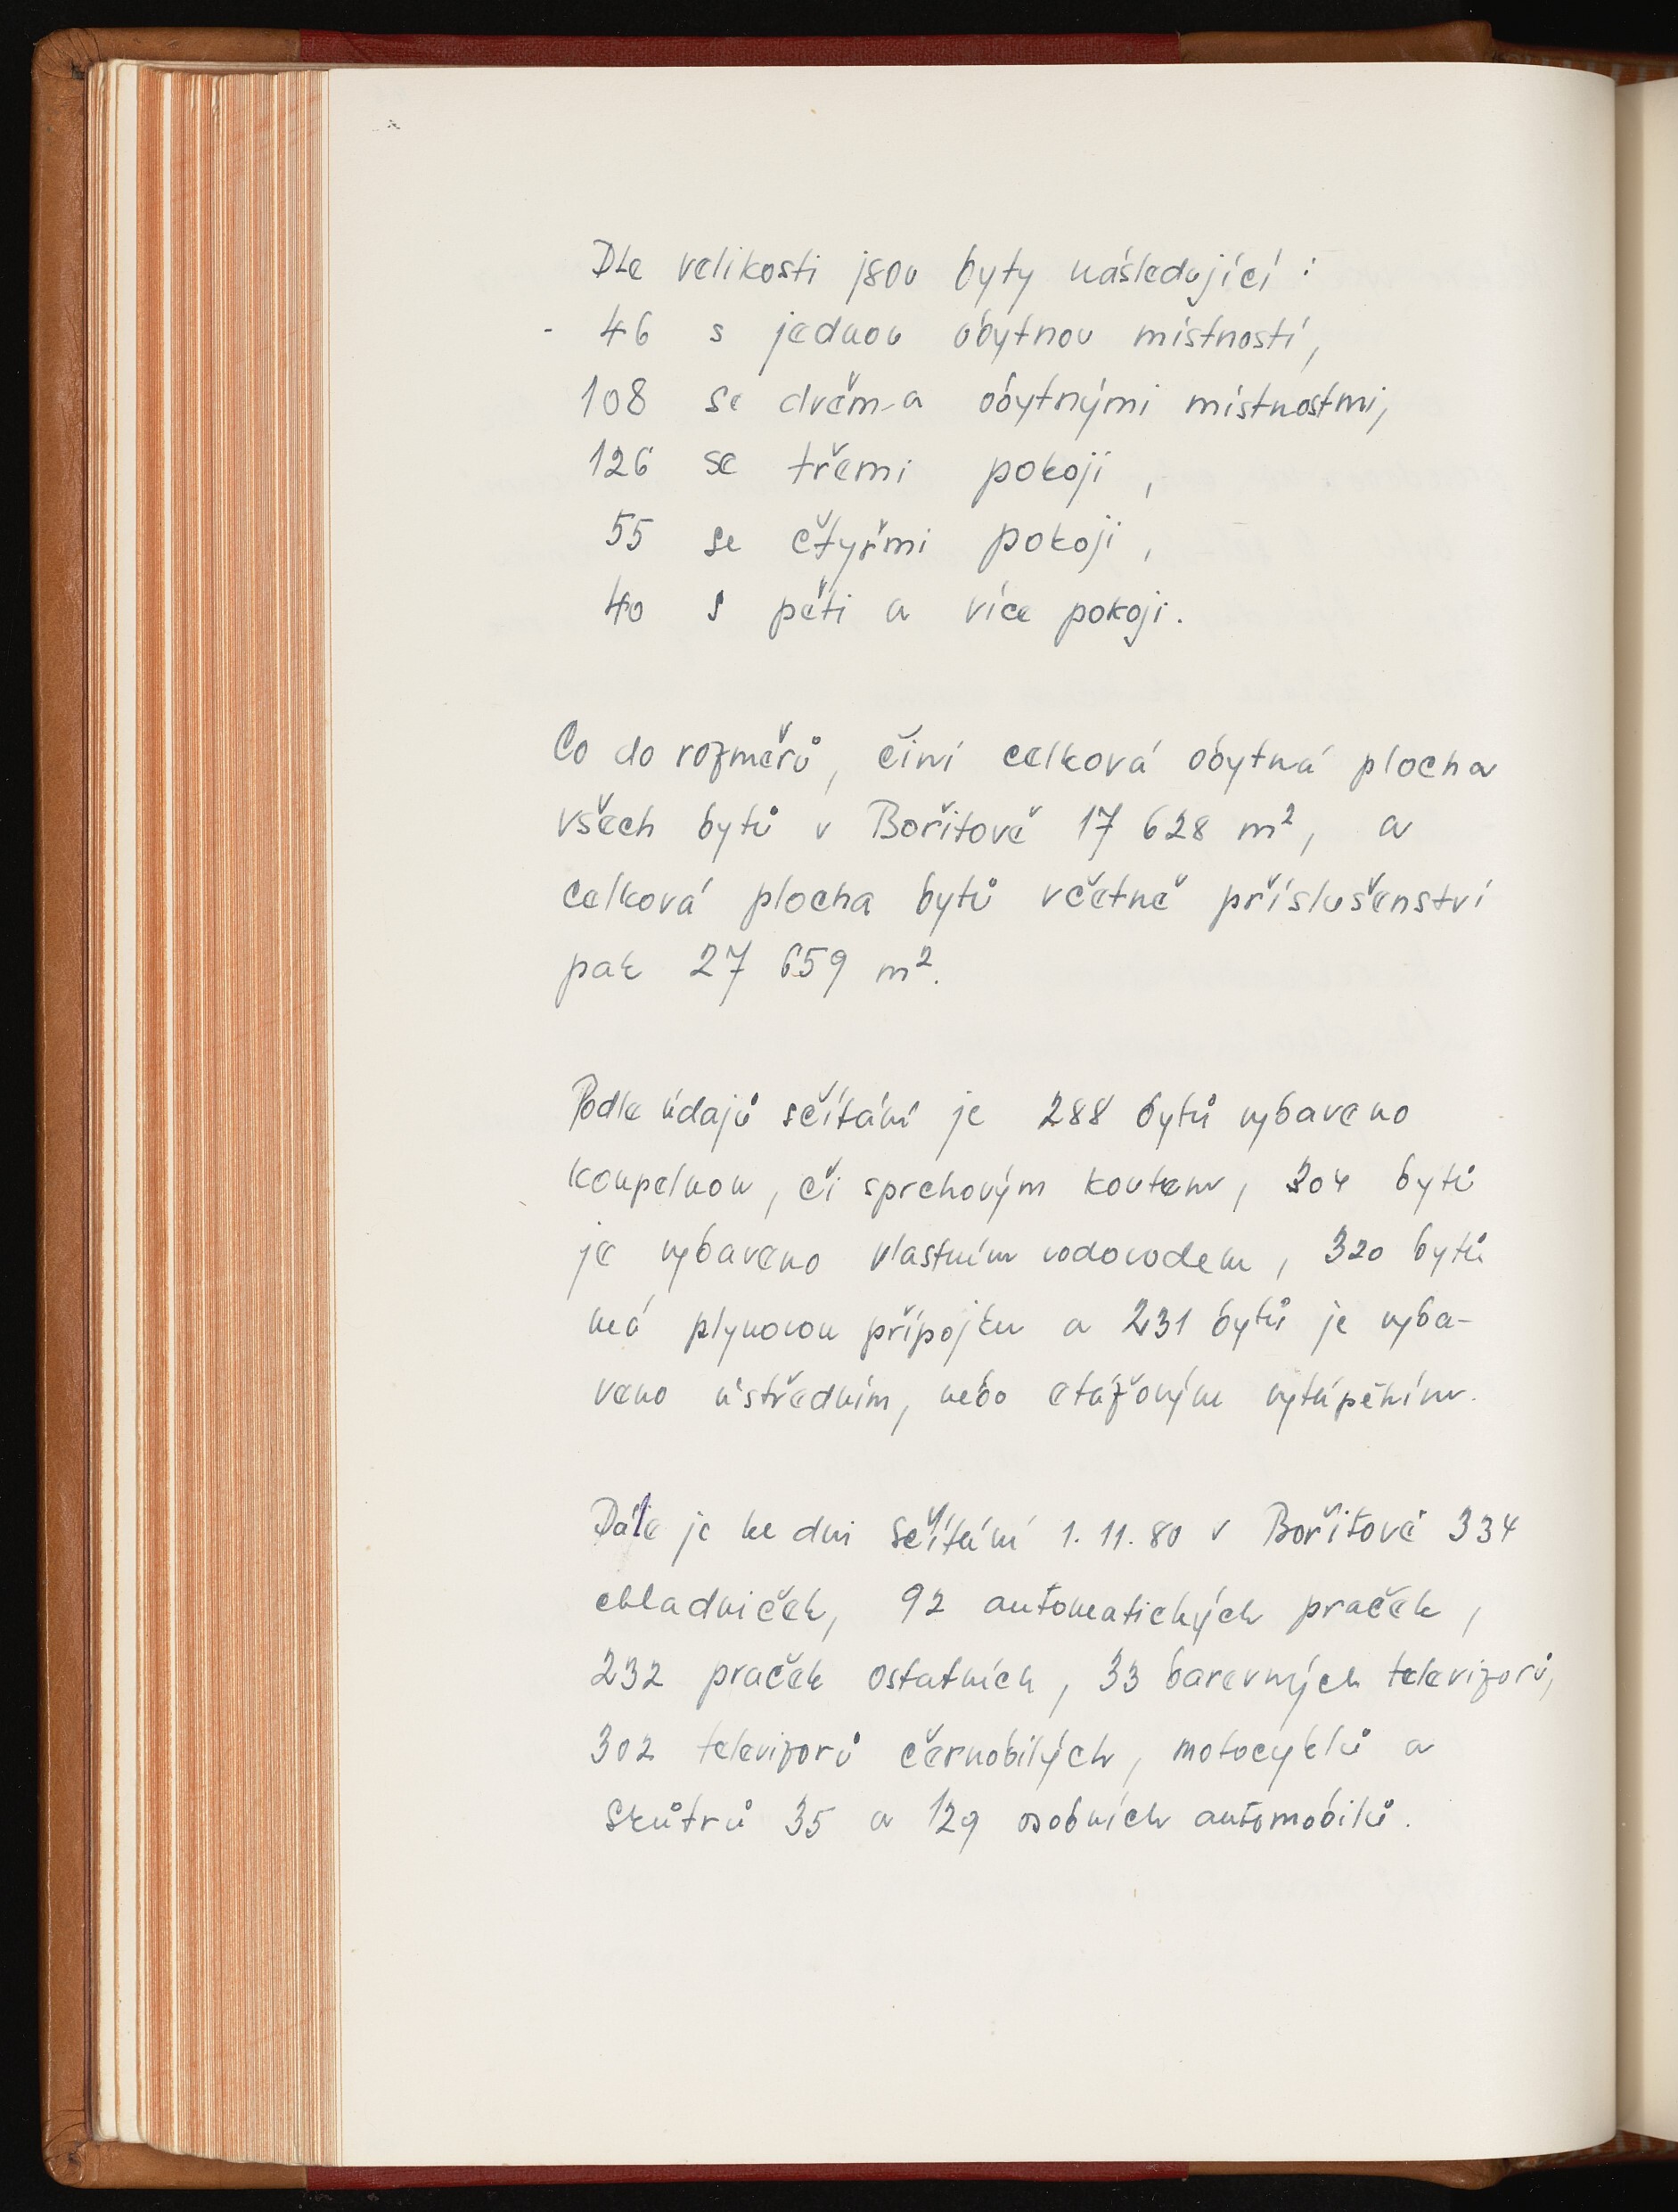 Dle velikosti jsou byty následující :
- 46 s jednou obytnou místností,
108 se dvěma obytnými místnostmi,
126 se třemi pokoji ,
55 se čtyřmi pokoji ,
40 s pěti a více pokoji .
Co do rozměrů, činí celková obytná plocha
všech bytů v Bořitově 17 628 m², a
celková plocha bytů včetně příslušenství
pak 27 659 m².
Podle údajů sčítání je 288 bytů vybaveno
koupelnou, či sprchovým koutem, 304 bytů
je vybaveno vlastním vodovodem, 320 bytů
má plynovou přípojku a 231 bytů je vyba-
veno ústředním, nebo etážovým vytápěním.
Dále je ke dni sečítání 1. 11. 80 v Bořitově 334
chladniček, 92 automatických praček ,
232 praček ostatních, 33 barevných televizorů,
302 televizorů černobílých, motocyklů a
skůtrů 35 a 129 osobních automobilů .